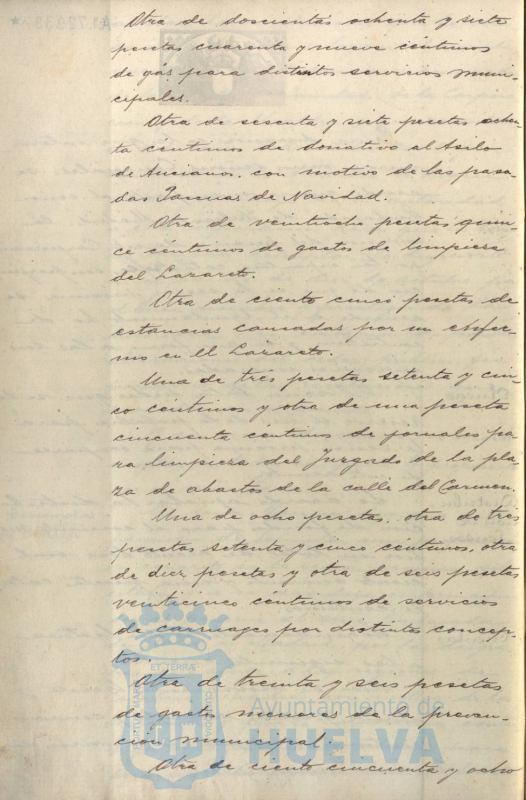 Otra de doscientas ochenta y siete
pesetas cuarenta y nueve céntimos
de gas para distintos servicios muni-
cipales.
Otra de sesenta y siete pesetas ochen
ta céntimos de donativo al Asilo
de Ancianos, con motivo de las pasa-
das Pascuas de Navidad.
Otra de veintiocho pesetas quin-
ce céntimos de gastos de limpieza
del Lazareto.
Otra de ciento cinco pesetas de
estancias causadas por un enfer-
mo en el Lazareto.
Una de tres pesetas setenta y cin-
co céntimos y otra de una peseta
cincuenta céntimos de jornales pa-
ra limpieza del Juzgado de la pla-
za de abastos de la calle del Carmen.
Una de ocho pesetas, otra de tres
pesetas setenta y cinco céntimos, otra
de diez pesetas y otra de seis pesetas
veinticinco céntimos de servicios
de carruages por distintos concep-
tos.
Otra de treinta y seis pesetas
de gastos menores de la preven-
ción municipal.
Otra de ciento cincuenta y ocho
Ayuntamiento de
HUELVA